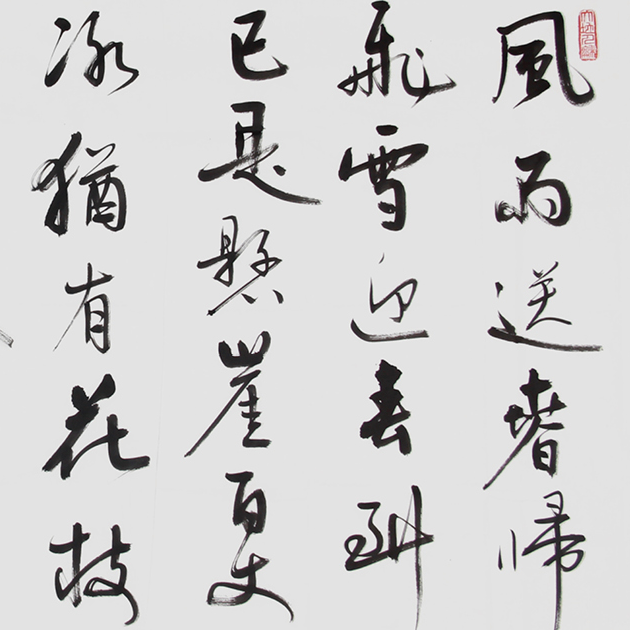 風雨送春帰
飛雪迎春到
已是懸崖百丈
冰猶有花枝